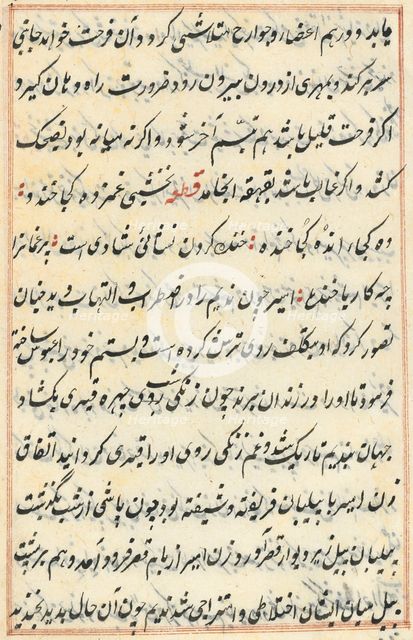 یابد و در هم اعضا و جوارح متلاشی کردد و آن فرحت خواهد جانبی
سر بر کند و بهری از درون بیرون رود ضرورت راه دهان کیرد
اکر فرحت قلیل باشد هم تبسم آخر شود و اکر نه میانه بود بضحک
کشد و اکر غالب باشد بقهقهه انجامد قطعه نخشبی غمزده کجا خندد
ده کجا راندۀ کجا خندد خنده کردن نشانی شادی است پر غمانرا
چه کار با خنده امیر چون ندیم را در اضطراب و التهاب دید چنان
تصور کرد که او بتکلف روی ترش کرده است و بستم خود را عبوس ساخته
فرمود تا او را در زندان برند چون زنکی روی چهره قیری بکشاد
جهان بندیم تاریک شد و غم زنکی روی او را قیدی کردانید اتفاق
زن امیر با پیلبان فریفته و شیفته بود چون پاشی از شب بکذشت
پیلبان پیل زیر دیوار قصر آورد زن امیر از بام قصر فرود آمد و هم بر پشت
پیل میان ایشان اختلاطی و امتزاجی شد ندیم چون آن حال بدید بخندید
Heritage
Heritage